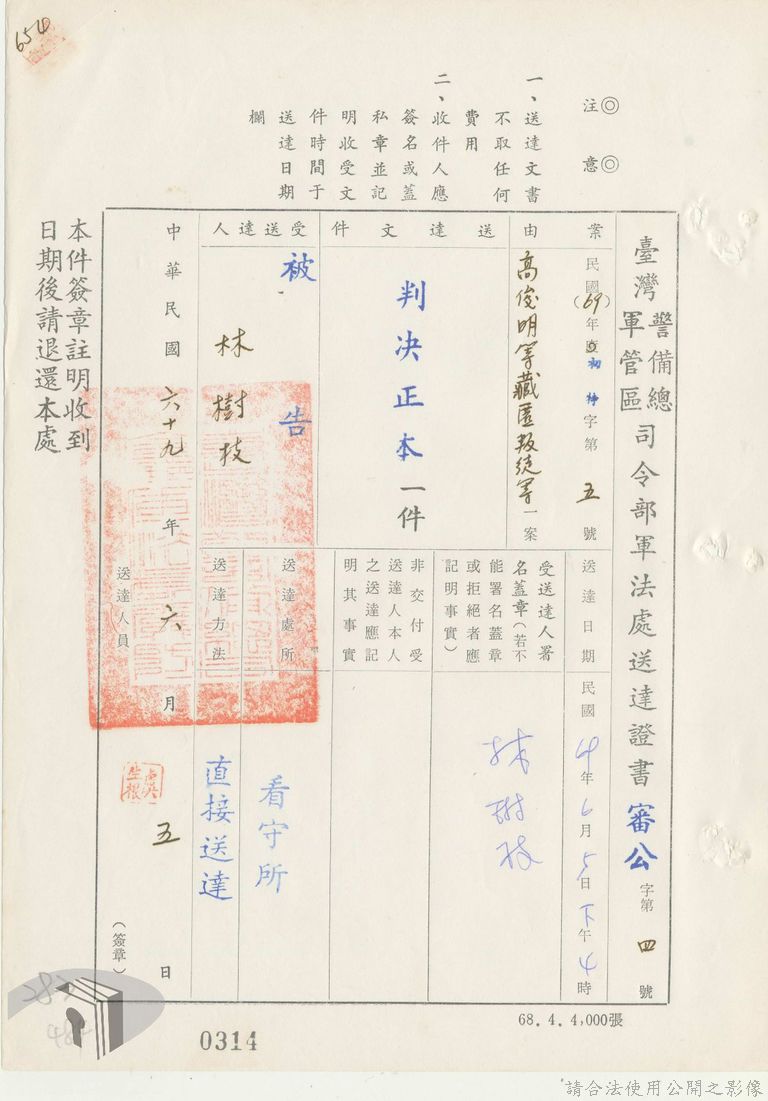 654
◎注意◎
一、送達文書
不取任何
費用
二、收件人應
簽名或蓋
私章並記
明收受文
件時間于
送達日期
欄
臺灣警備總軍管區司令部軍法處送達證書 審公字第四號
案由
民國(69)年初特字第五號
高俊明等藏匿叛徒等一案
送達日期
民國 年6月5日下午4時
送達文件
判決正本一件
受送達人署
名蓋章(若不
能署名蓋章
或拒絕者應
記明事實)
林樹枝
非交付受
送達人本人
之送達應記
明其事實
受送達人
被告
林樹枝
送達處所
看守所
送達方法
直接送達
中華民國六十九年六月五日
送達人員
(簽章)
本件簽章註明收到
日期後請退還本處
68.4.4,000張
0314
請合法使用公開之影像